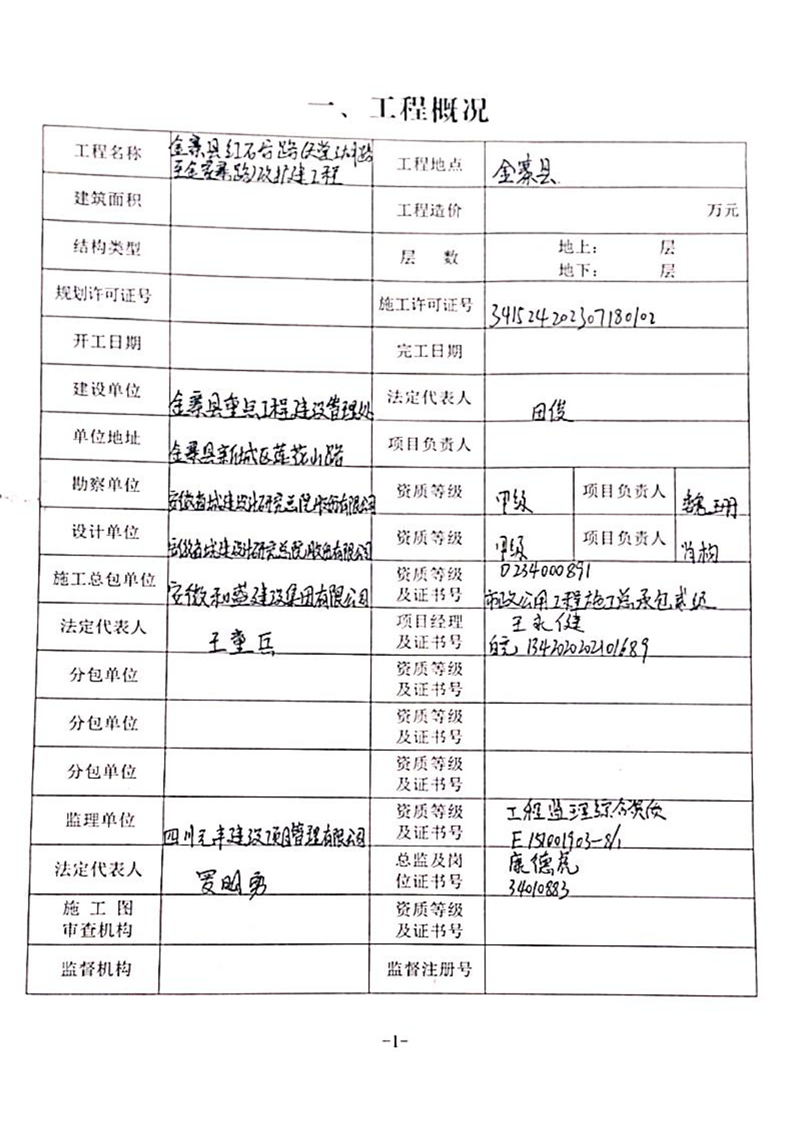 一、工程概况
工程名称 金寨县红石谷路(
至金寨路)改扩建工程 工程地点 金寨县
建筑面积 工程造价 万元
结构类型 层 数 地上: 层
地下: 层
规划许可证号 施工许可证号 341524202307180102
开工日期 完工日期
建设单位 金寨县重点工程建设管理处 法定代表人 田俊
单位地址 金寨县新城区莲花山路 项目负责人
勘察单位 安徽省城建设计研究总院股份有限公司 资质等级 甲级 项目负责人 魏珊
设计单位 安徽省城建设计研究总院股份有限公司 资质等级 甲级 项目负责人 肖构
施工总包单位 安徽和 建设集团有限公司 资质等级 D234000891
及证书号 市政公用工程施工总承包贰级
法定代表人 王 兵 项目经理 王永健
及证书号 皖1342020202101689
分包单位 资质等级
及证书号
分包单位 资质等级
及证书号
分包单位 资质等级
及证书号
监理单位 四川元丰建设项目管理有限公司 资质等级 工程监理综合资质
及证书号 E151001903-8/1
法定代表人 罗明勇 总监及岗 康德虎
位证书号 34010883
施 工 图 资质等级
审查机构 及证书号
监督机构 监督注册号
-1-